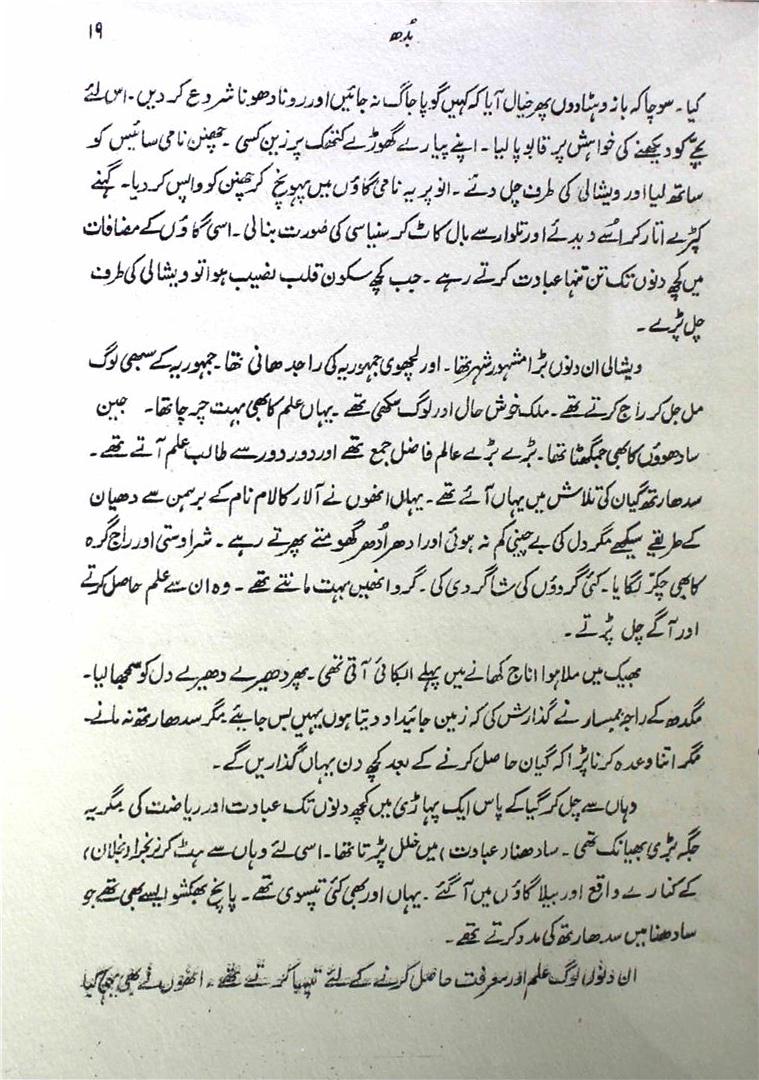 بُدھ
۱۹
کیا۔ سوچا کہ بانہ وہٹادوں پھر خیال آیا کہ کہیں گوپا جاگ نہ جائیں اور رونا دھونا شروع کر دیں۔ اس لئے
بچّے کو دیکھنے کی خواہش پر قابو پا لیا۔ اپنے پیارے گھوڑے کنتھک پر زین کسی۔ چھنن نامی سائیس کو
ساتھ لیا اور ویشالی کی طرف چل دئے۔ انوپریہ نامی گاؤں میں پہونچ کر چھنن کو واپس کر دیا۔ گہنے
کپڑے اتار کر اُسے دیدئے اور تلوار سے بال کاٹ کر سنیاسی کی صُورت بنالی۔ اسی گاؤں کے مضافات
میں کچھ دنوں تک تن تنہا عبادت کرتے رہے۔ جب کچھ سکون قلب نصیب ہوا تو ویشالی کی طرف
چل پڑے۔
ویشالی ان دنوں بڑا مشہور شہر تھا۔ اور لچھوی جمہوریہ کی راجدھانی تھا۔ جمہوریہ کے سبھی لوگ
مل جل کر راج کرتے تھے۔ ملک خوش حال اور لوگ سکھی تھے۔ یہاں علم کا بھی بہت چرچا تھا۔ جین
سادھوؤں کا بھی جمگھٹا تھا۔ بڑے بڑے عالم فاضل جمع تھے اور دور دور سے طالب علم آتے تھے۔
سدھارتھ گیان کی تلاش میں یہاں آئے تھے۔ یہاں انھوں نے آلار کالام نام کے برہمن سے دھیان
کے طریقے سیکھے مگر دل کی بے چینی کم نہ ہوئی اور ادھر اُدھر گھومتے پھرتے رہے۔ شراوستی اور راج گرہ
کا بھی چکّر لگایا۔ کئی گروؤں کی شاگردی کی۔ گرو انھیں بہت مانتے تھے۔ وہ ان سے علم حاصل کرتے
اور آگے چل پڑتے۔
بھیک میں ملا ہوا اناج کھانے میں پہلے ابکائی آتی تھی۔ پھر دھیرے دھیرے دل کو سمجھا لیا۔
مگدھ کے راجہ بمبسار نے گذارش کی کہ زمین جائیداد دیتا ہوں یہیں بس جایئے مگر سدھارتھ نہ مانے۔
مگر اتنا وعدہ کرنا پڑا کہ گیان حاصل کرنے کے بعد کچھ دن یہاں گذاریں گے۔
وہاں سے چل کر گیا کے پاس ایک پہاڑی میں کچھ دنوں تک عبادت اور ریاضت کی مگر یہ
جگہ بڑی بھیانک تھی۔ سادھنا (عبادت) میں خلل پڑتا تھا۔ اسی لئے وہاں سے ہٹ کر
کے کنارے واقع اور بیلا گاؤں میں آ گئے۔ یہاں اور بھی کئی تپسوی تھے۔ پانچ بھکشو ایسے بھی تھے جو
سادھنا میں سدھارتھ کی مدد کرتے تھے۔
ان دنوں لوگ علم اور معرفت حاصل کرنے کے لئے تپسیا کرتے تھے۔ انھوں نے بھی یہی کیا